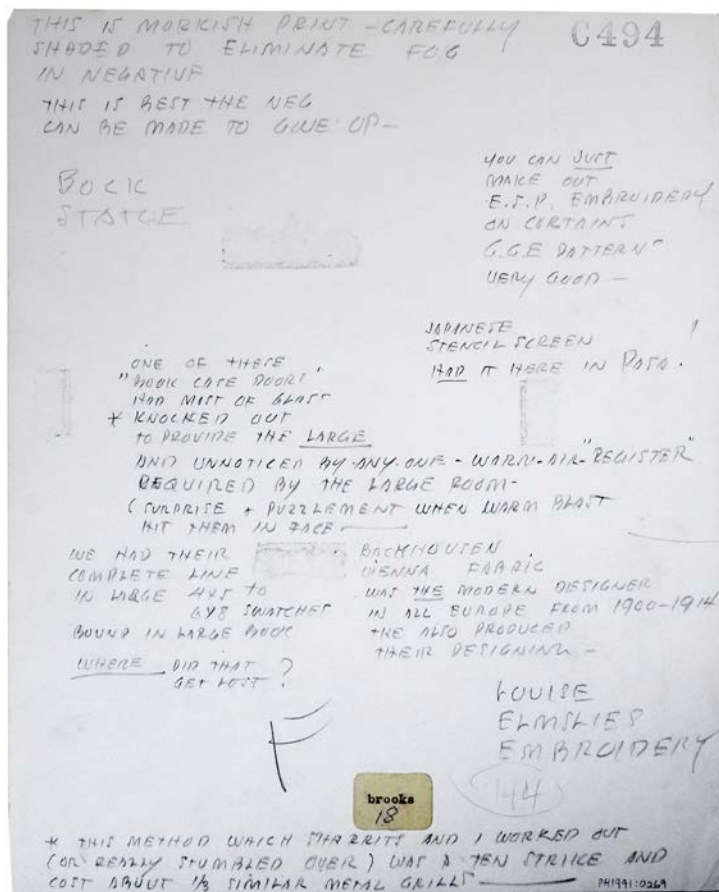 THIS IS MORKISH PRINT - CAREFULLY
SHADED TO ELIMINATE FOG
IN NEGATIVE
C494
THIS IS BEST THE NEG
CAN BE MADE TO GIVE UP -
BOCK
STATUE
YOU CAN JUST
MAKE OUT
E.S.P. EMBROIDERY
ON CURTAINS
G.G.E PATTERN
VERY GOOD -
JAPANESE
STENCIL SCREEN
HAD IT HERE IN PASA.
ONE OF THESE
"BOOK CASE DOORS"
HAD MOST OF GLASS
* KNOCKED OUT
TO PROVIDE THE LARGE
AND UNNOTICED BY-ANY-ONE - WARM-AIR-"REGISTER"
REQUIRED BY THE LARGE ROOM -
(SURPRISE + PUZZLEMENT WHEN WARM BLAST
HIT THEM IN FACE -
WE HAD THEIR
COMPLETE LINE
IN LARGE 4X5 TO
6X8 SWATCHES
BOUND IN LARGE BOOK
WHERE DID THAT
GET LOST?
BACKHOUSEN
VIENNA FABRIC
WAS THE MODERN DESIGNER
IN ALL EUROPE FROM 1900-1914
THE ALSO PRODUCED
THEIR DESIGNING -
LOUISE
ELMSLIES
EMBROIDERY
F
144
brooks
18
* THIS METHOD WHICH STARRITS AND I WORKED OUT
(OR REALLY STUMBLED OVER) WAS A TEN STRIKE AND
COST ABOUT 1/3 SIMILAR METAL GRILLS -
PH1991:0269